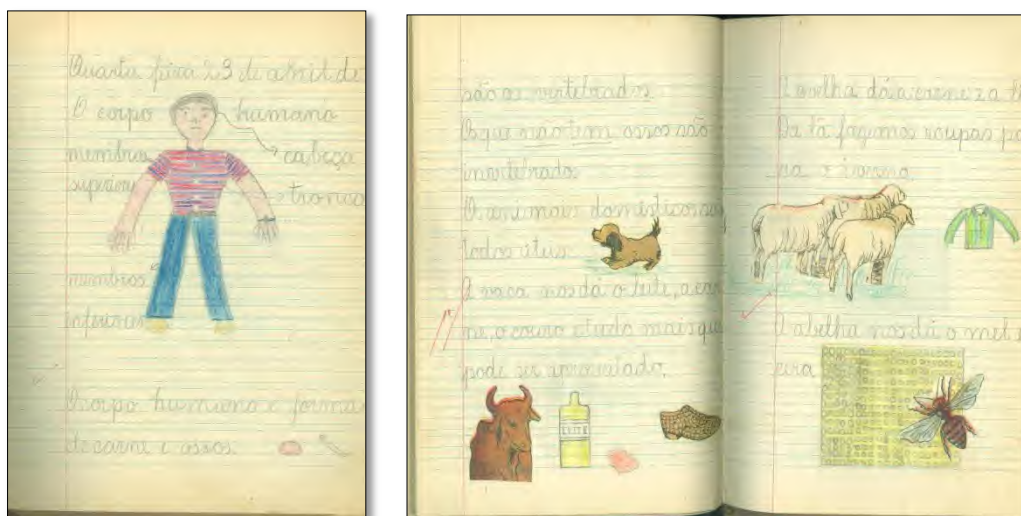 Quarta feira 23 de abril de
O corpo humano
membros cabeça
superiores tronco
membros
inferiores
O corpo humano é forma
de carne e ossos.
são os vertebrados
Os que não tem ossos são
invertebrados
Os animais domésticos
todos úteis
A vaca nos dá o leite, a car
ne, o couro e tudo mais que
pode ser aproveitado.
LEITE
A ovelha dá a carne e a
Da lã fazemos roupas pa
ra o inverno
A abelha nos dá o mel e
cera